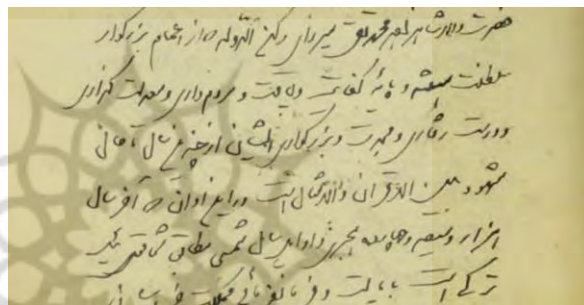 حضرت والا شاهزاده محمدتقی میرزای رکن الدوله که از اعمام بزرگوار
سلطنت هستند و پایه کفایت و لیاقت و مردم داری و معدلت گذاری
و درست رفتاری و مجربت و بزرگواری ایشان از چندین سال تا حال
مشهود بین الاقران والامثال است در این اوان که آخر سال
هزار و سیصد و هجری و اوایل سال شمسی مطابق
ترکی است بایالت و فرمانفرمائی مملکت